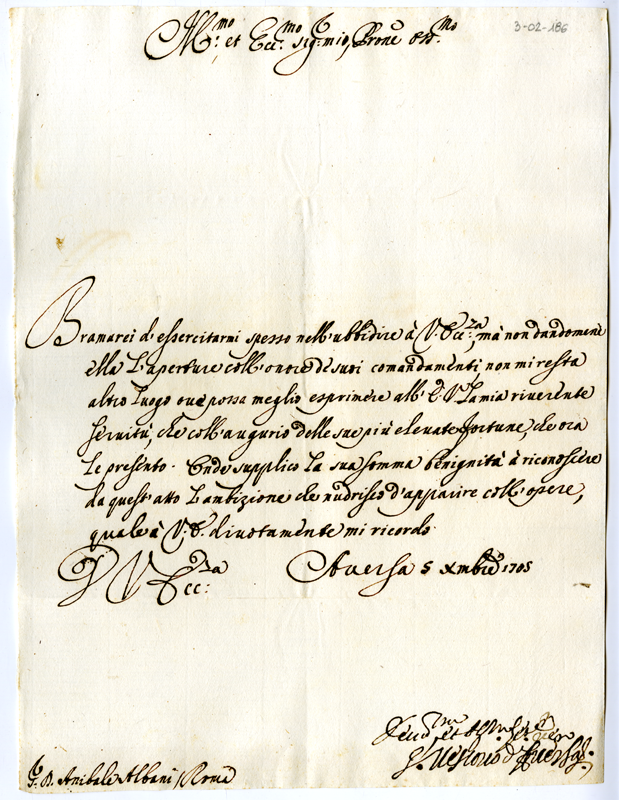 3-02-186
Ill.mo et Ecc.mo Sig.r mio, Prone Oss.mo
Bramarei d'essercitarmi spesso nell'ubbidire à V. Ecc.za, mà non dandomene
ella l'aperture coll'onore de suoi comandamenti, non mi resta
altro luogo ove possa meglio esprimere all'E. V. la mia riverente
servitù, che coll'augurio delle sue più elevate fortune, che ora
le presento. Onde supplico la sua somma benignità à riconoscere
da quest'atto l'ambizione che nudrisco d'apparire coll'opere,
quale à V. E. divotamente mi ricordo.
D V Ecc.za Aversa 5 Xmbre 1705
Devd.mo et
Il Vescovo d'Aversa
S. D. Anibale Albani / Roma